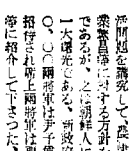 活問題を講究して、農政
業繁昌等に対する方針な
であるが、之は朝鮮人に
一大曙光である。新政府
〇、〇〇両将軍は尹子爵
招待され席上両将軍は聖
等に紹介して下さつた、